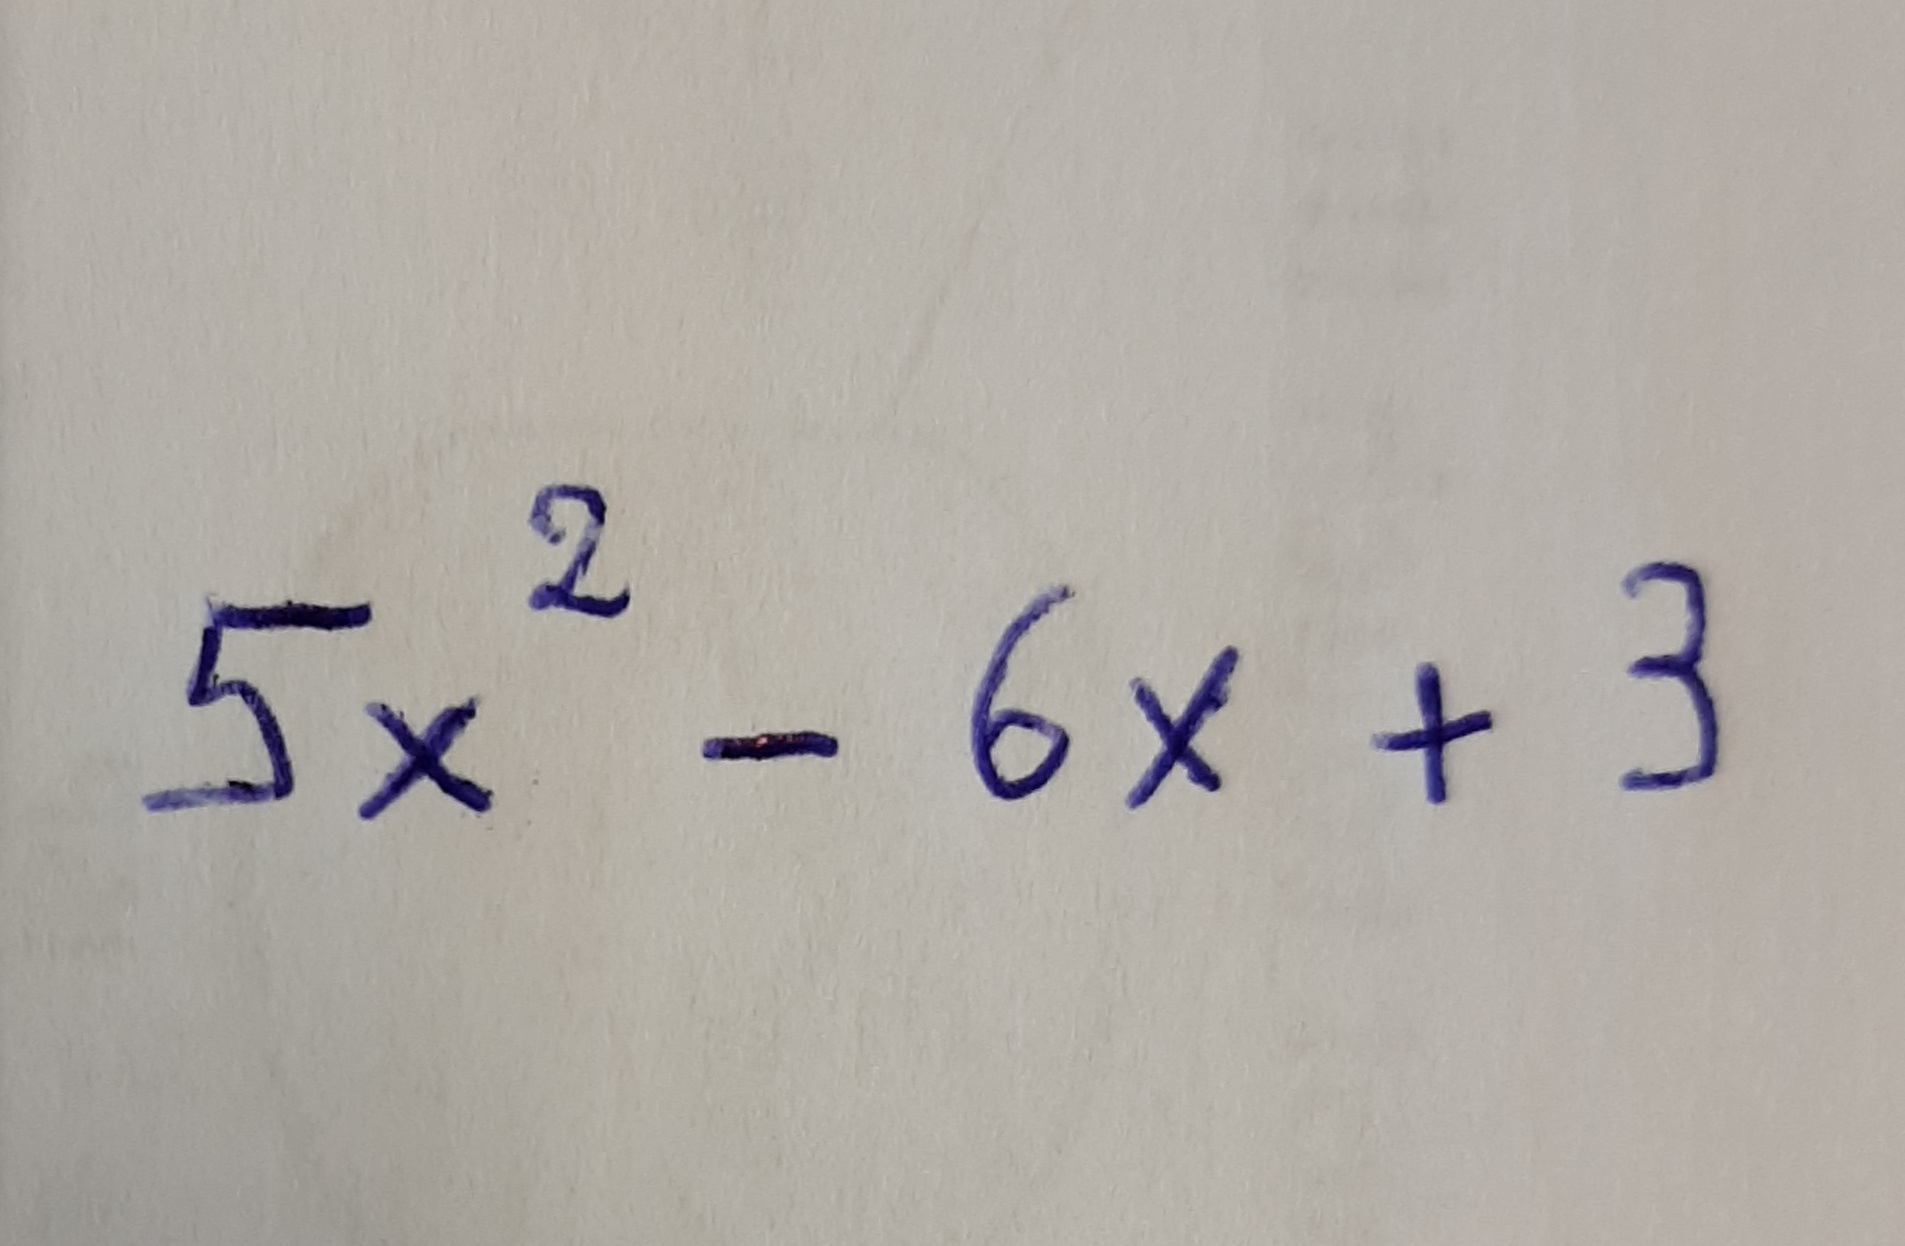 5x² - 6x + 3